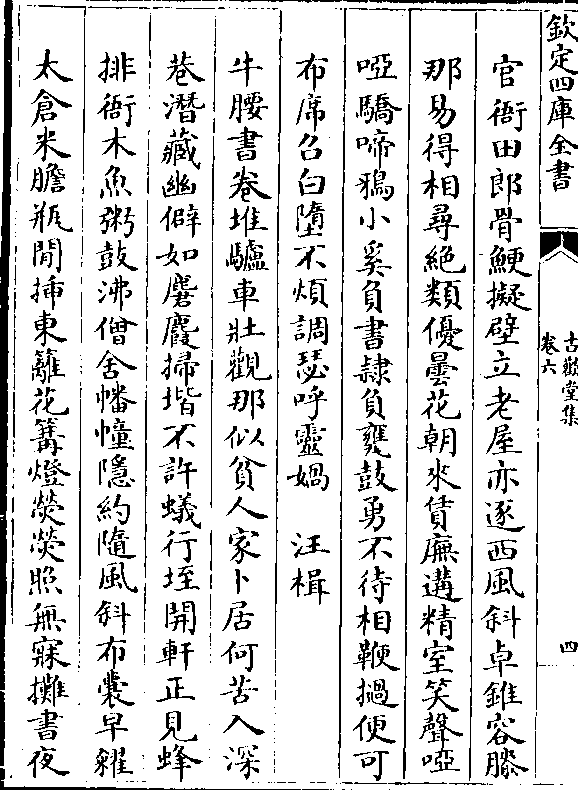 欽定四庫全書
古歡堂集
卷六
四
官衙田郎骨鯁擬壁立老屋亦逐西風斜卓錐容膝
那易得相尋絶類優曇花朝來賃廡遘精室笑聲啞
啞驕啼鴉小奚負書隸負甕鼓勇不待相鞭撾便可
布席召白墮不煩調瑟呼靈媧　汪楫
牛腰書卷堆驢車壯觀那似貧人家卜居何苦入深
巷潛藏幽僻如麏麚掃堦不許蟻行垤開軒正見蜂
排衙木魚粥鼓沸僧舍幡幢隱約隨風斜布囊早糴
太倉米膽瓶閒揷東籬花篝燈熒熒照無寐攤書夜